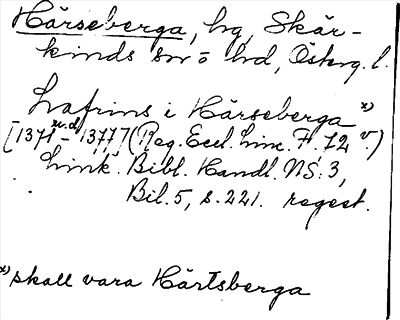 Härseberga, hg, Skär-
kinds sn o hd, Österg. l.
Lafrins i Härseberga x)
[1371 u.d. - 1377] (Reg. Eccl. Linc. F. 72 v.)
Link. Bibl. Handl. NS. 3,
Bil. 5, s. 221. regest.
x) skall vara Härtsberga